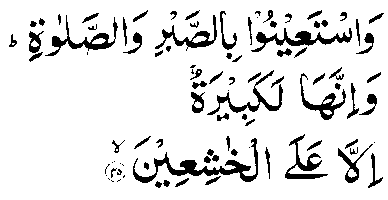 وَاسْتَعِيْنُوْا بِالصَّبْرِ وَالصَّلٰوةِ ؕ
وَاِنَّهَا لَكَبِيْرَةٌ
اِلَّا عَلَى الْخٰشِعِيْنَ ۙ‏﴿۴۵﴾